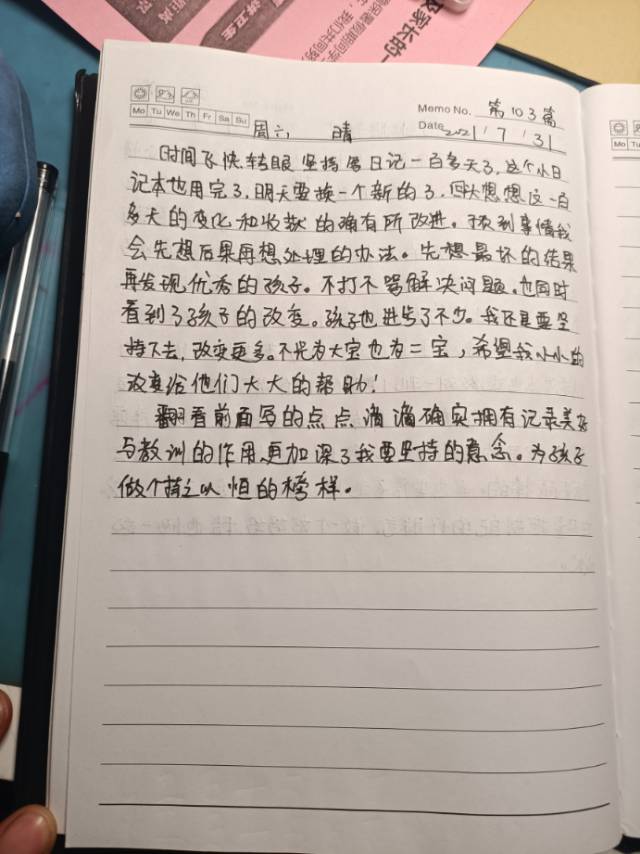 Memo No. 第103篇
Mo Tu We Th Fr Sa Su
Date 2021/7/31
周六 晴
时间飞快转眼坚持写日记一百多天了,这个小日
记本也用完了,明天要换一个新的了,但大想想这一百
多天的变化和收获的确有所改进。预到事情我
会先想后果再想处理的办法。先想最坏的结果
再发现优秀的孩子。不打不骂解决问题。也同时
看到了孩子的改变。孩子也进步了不少。我还是要坚
持下去,改变更多。不光为大宝也有二宝,希望我小小的
改变给他们大大的帮助!
翻看前面写的点点滴滴确实拥有记录美好
与教训的作用更加深了我要坚持的意念。为孩子
做个持之以恒的榜样。